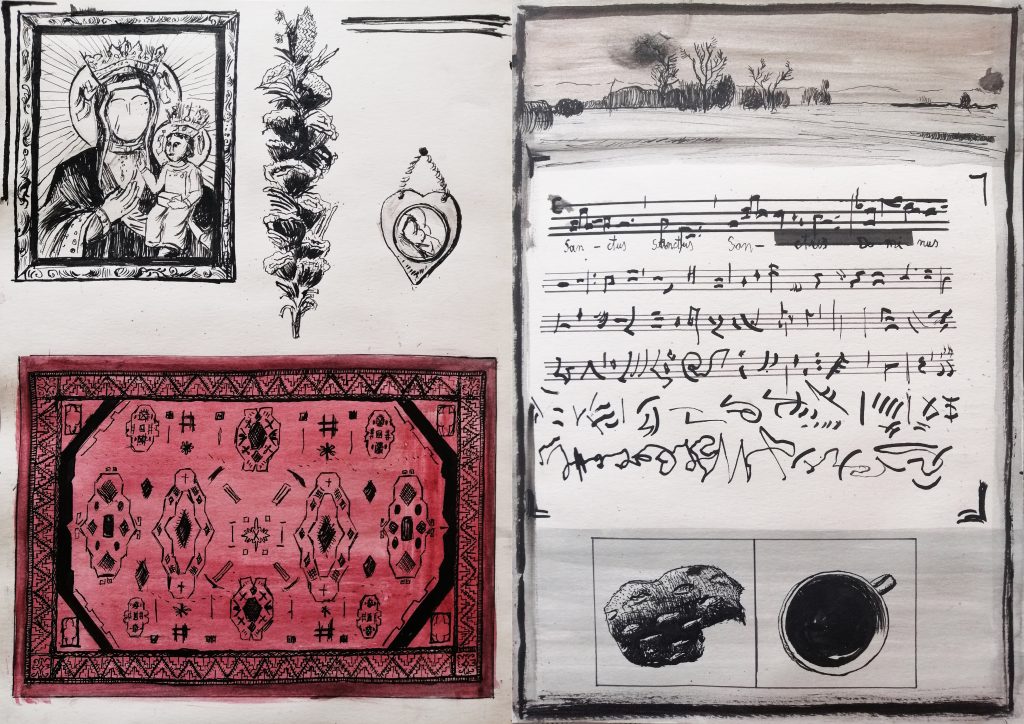 San – ctus Sanctus San – ctus Do mi nus